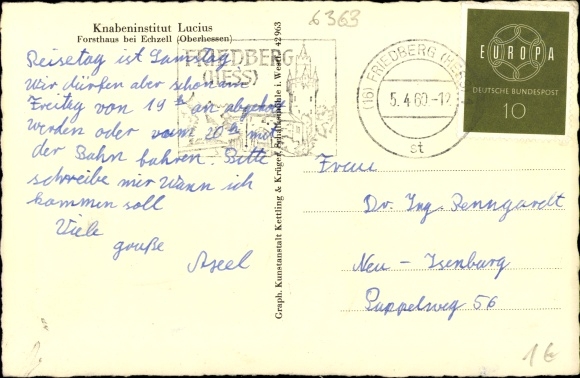 Knabeninstitut Lucius
Forsthaus bei Echzell (Oberhessen)
6363
Reisetag ist Samstag
Wir dürfen aber schon am
Freitag von 14 h an abgeholt
werden oder vom 20 h mit
der Bahn bahren. Bitte
schreibe mir wann ich
kommen soll
Viele
grouße
Axel
FRIEDBERG
(HESS)
Graph. Kunstanstalt Kettling & Krüger, Schalksmühle i. Westf. 42963
(16) FRIEDBERG (HESS)
5.4.60.-12
st
EUROPA
DEUTSCHE BUNDESPOST
10
Frau
Dr. Ing. Renngardt
Neu-Isenburg
Pappelweg 56
1€